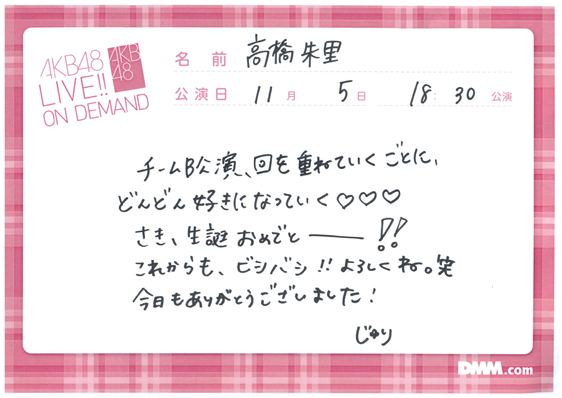 AKB48
LIVE!!
ON DEMAND
AKB
48
名前 高橋朱里
公演日 11月 5日 18:30公演
チームB公演、回を重ねていくごとに、
どんどん好きになっていく♡♡♡
さき、生誕おめでと――!!
これからも、ビシバシ!!よろしくね。笑
今日もありがとうございました!
じゅり
DMM.com